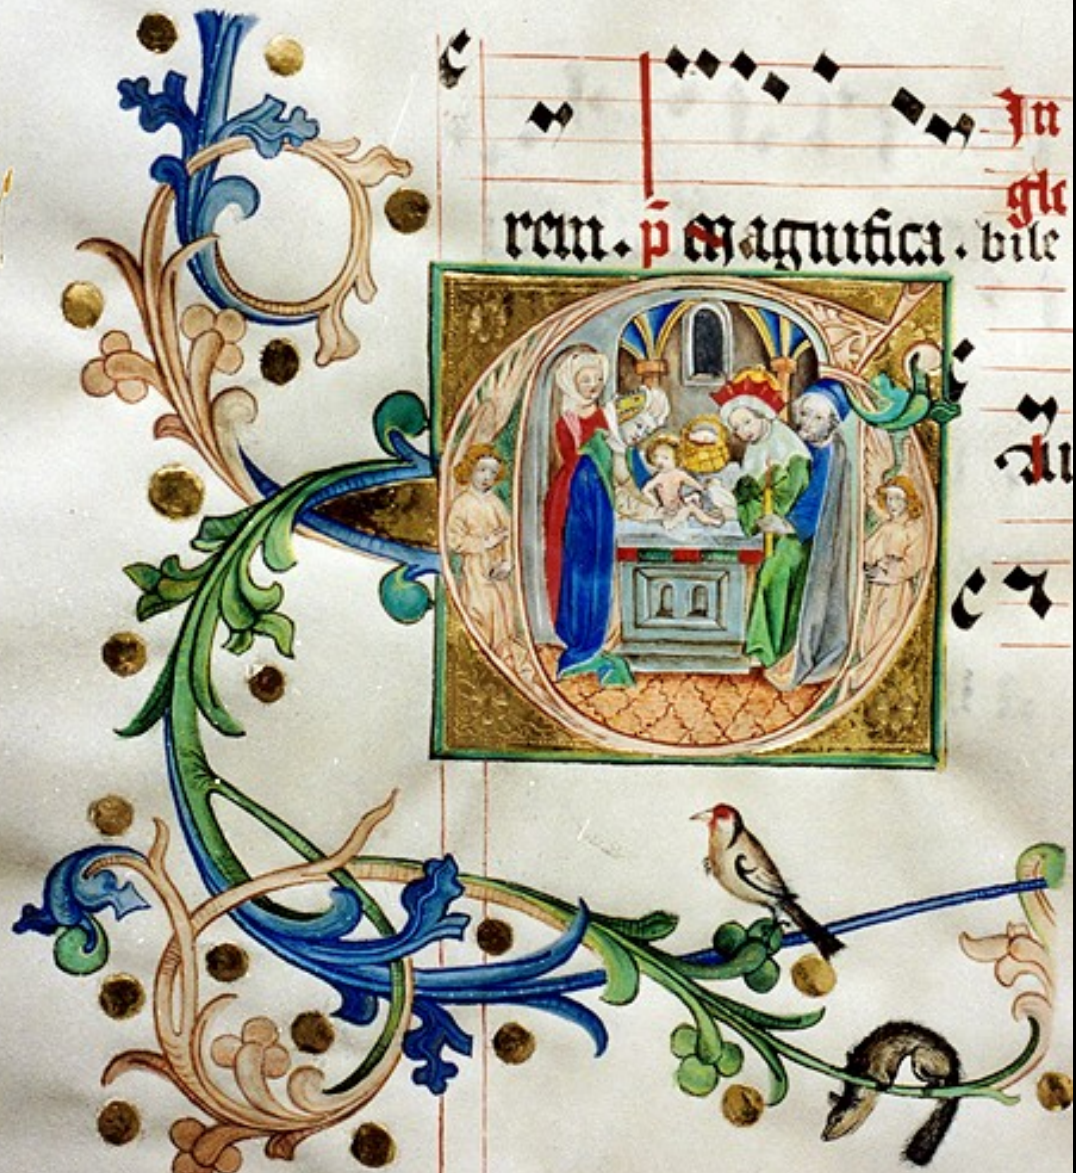 In
glo
rem. p̄ Magnifica. bile